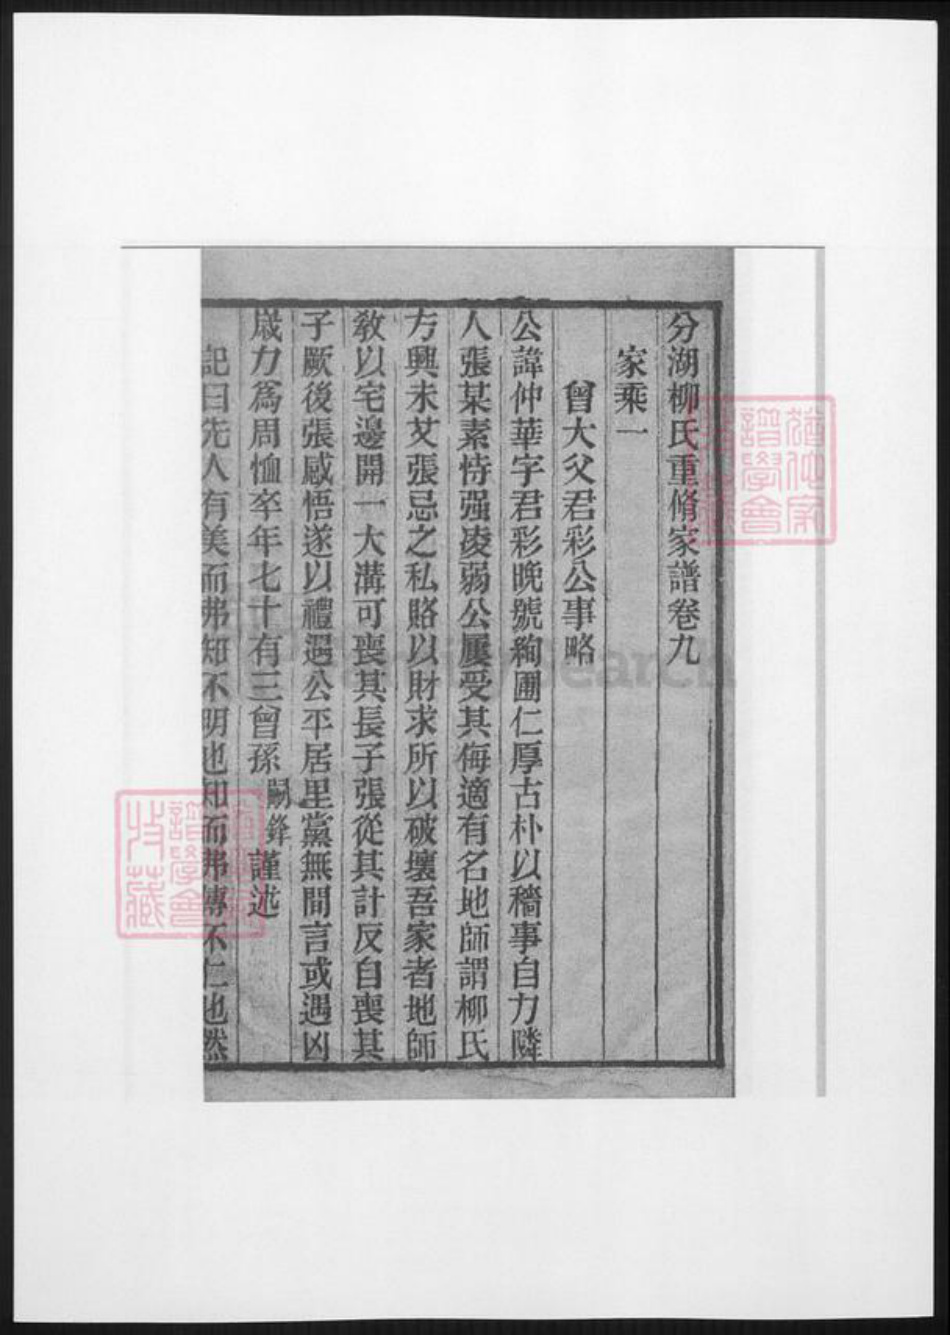 分湖柳氏重脩家譜卷九
家乘一
曾大父君彩公事略
公諱仲華字君彩晚號絢圃仁厚古朴以穡事自力隣
人張某素恃强凌弱公屢受其侮適有名地師謂柳氏
方興未艾張忌之私賂以財求所以破壞吾家者地師
敎以宅邊開一大溝可喪其長子張從其計反自喪其
子厥後張感悟遂以禮遇公平居里黨無間言或遇凶
歲力爲周恤卒年七十有三曾孫嗣鋒謹述
記曰先人有美而弗知不明也知而弗傳不仁也然
FamilySearch
譜學會
收藏